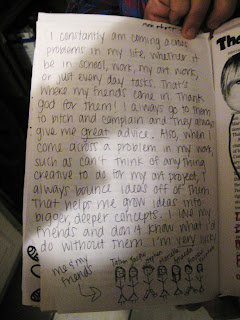 I constantly am coming across
problems in my life, whether it
be in school, work, my art work,
or just every day tasks. That's
where my friends come in. Thank
god for them! I always go to them
to bitch and complain and they always
give me great advice. Also, when I
come across a problem in my work
such as can't think of anything
creative to do for my art project, I
always bounce ideas off of them.
That helps me grow ideas into
bigger, deeper concepts. I love my
friends and don't know what I'd
do without them. I'm very lucky
me & my
friends
The